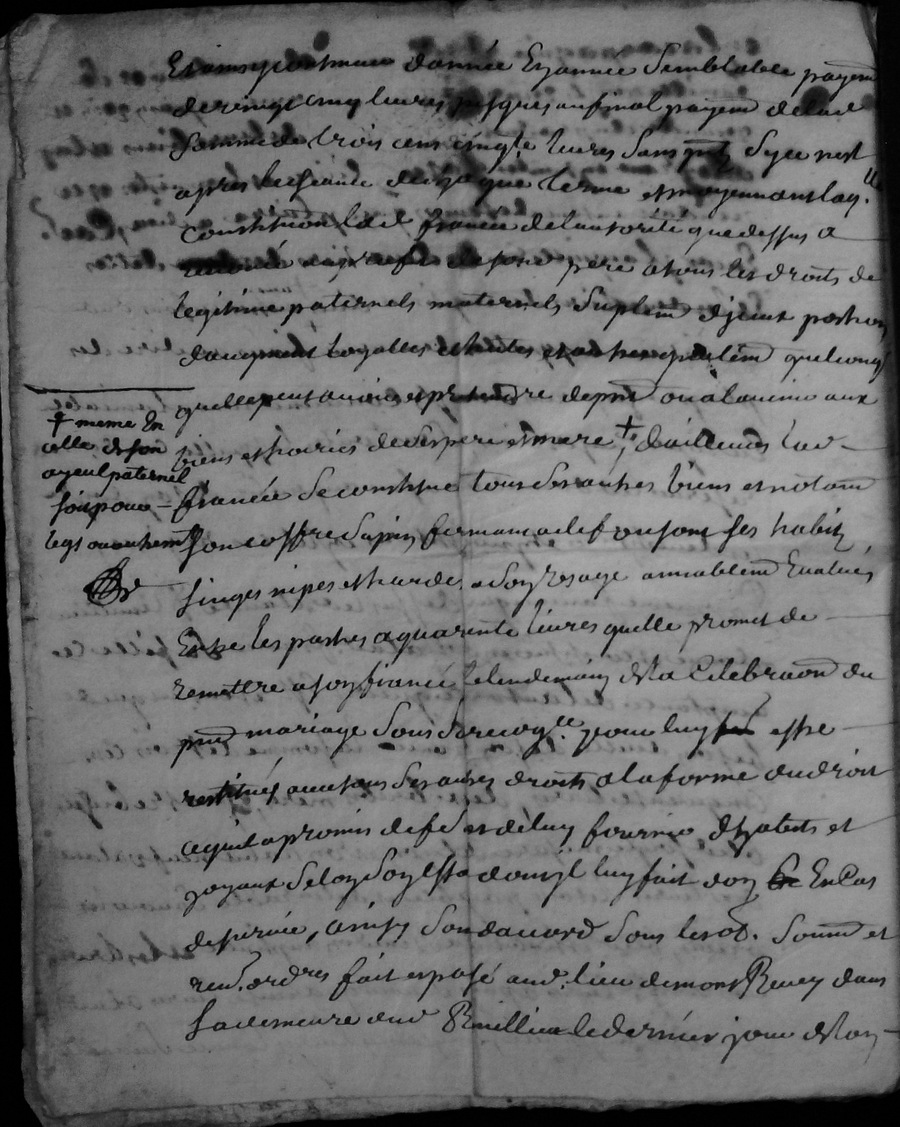 Et ainsy continuer d'année En année Semblable payem̄
de vingt cinq livres jusques au final payem̄ de lad
somme de trois cens cinqte livres Sans Sy ce nest
apres lecheance de chaque terme et moyennant laq.lle
Constituon lad. fiancée de l'autorité que dessus a
renoncé au proffit de sond pere a tous les droits de
legitime paternels maternels Suplem̄ d'jceux portion
d'augment et autres quelconq
quelle peut avoir et pretendre de pnt ou a l'avenir aux
biens et hoiries de ses pere et mere †, d'ailleurs lad
fiancée Se constitue tous Ses autres biens et notam
Son coffre Sapin fermant a clef ou sont ses habits
linges nipes et hardes a Son usage amiablem̄ Evalués
Entre les parties a quarente livres quelle promet de
remettre a son fiancé le lendemain de la Celebraon du
pnt mariage Sous Se recog.lle pour luy estre
restitués avec tous Ses autres droits a la forme du droit
ce quil a promis de fe et de luy fournir d'habits et
joyaux Selon Son Estat dont jl luy fait don En Cas
de survie, ainsy Sont d'accord Sous les ob. Soumō et
renō. ordres fait et passé aud. lieu de mont Revey dans
la demeure dud Rmillieu le dernier jour de May
† meme En
celle de son
ayeul paternel
soit pour
legs ou autrem̄